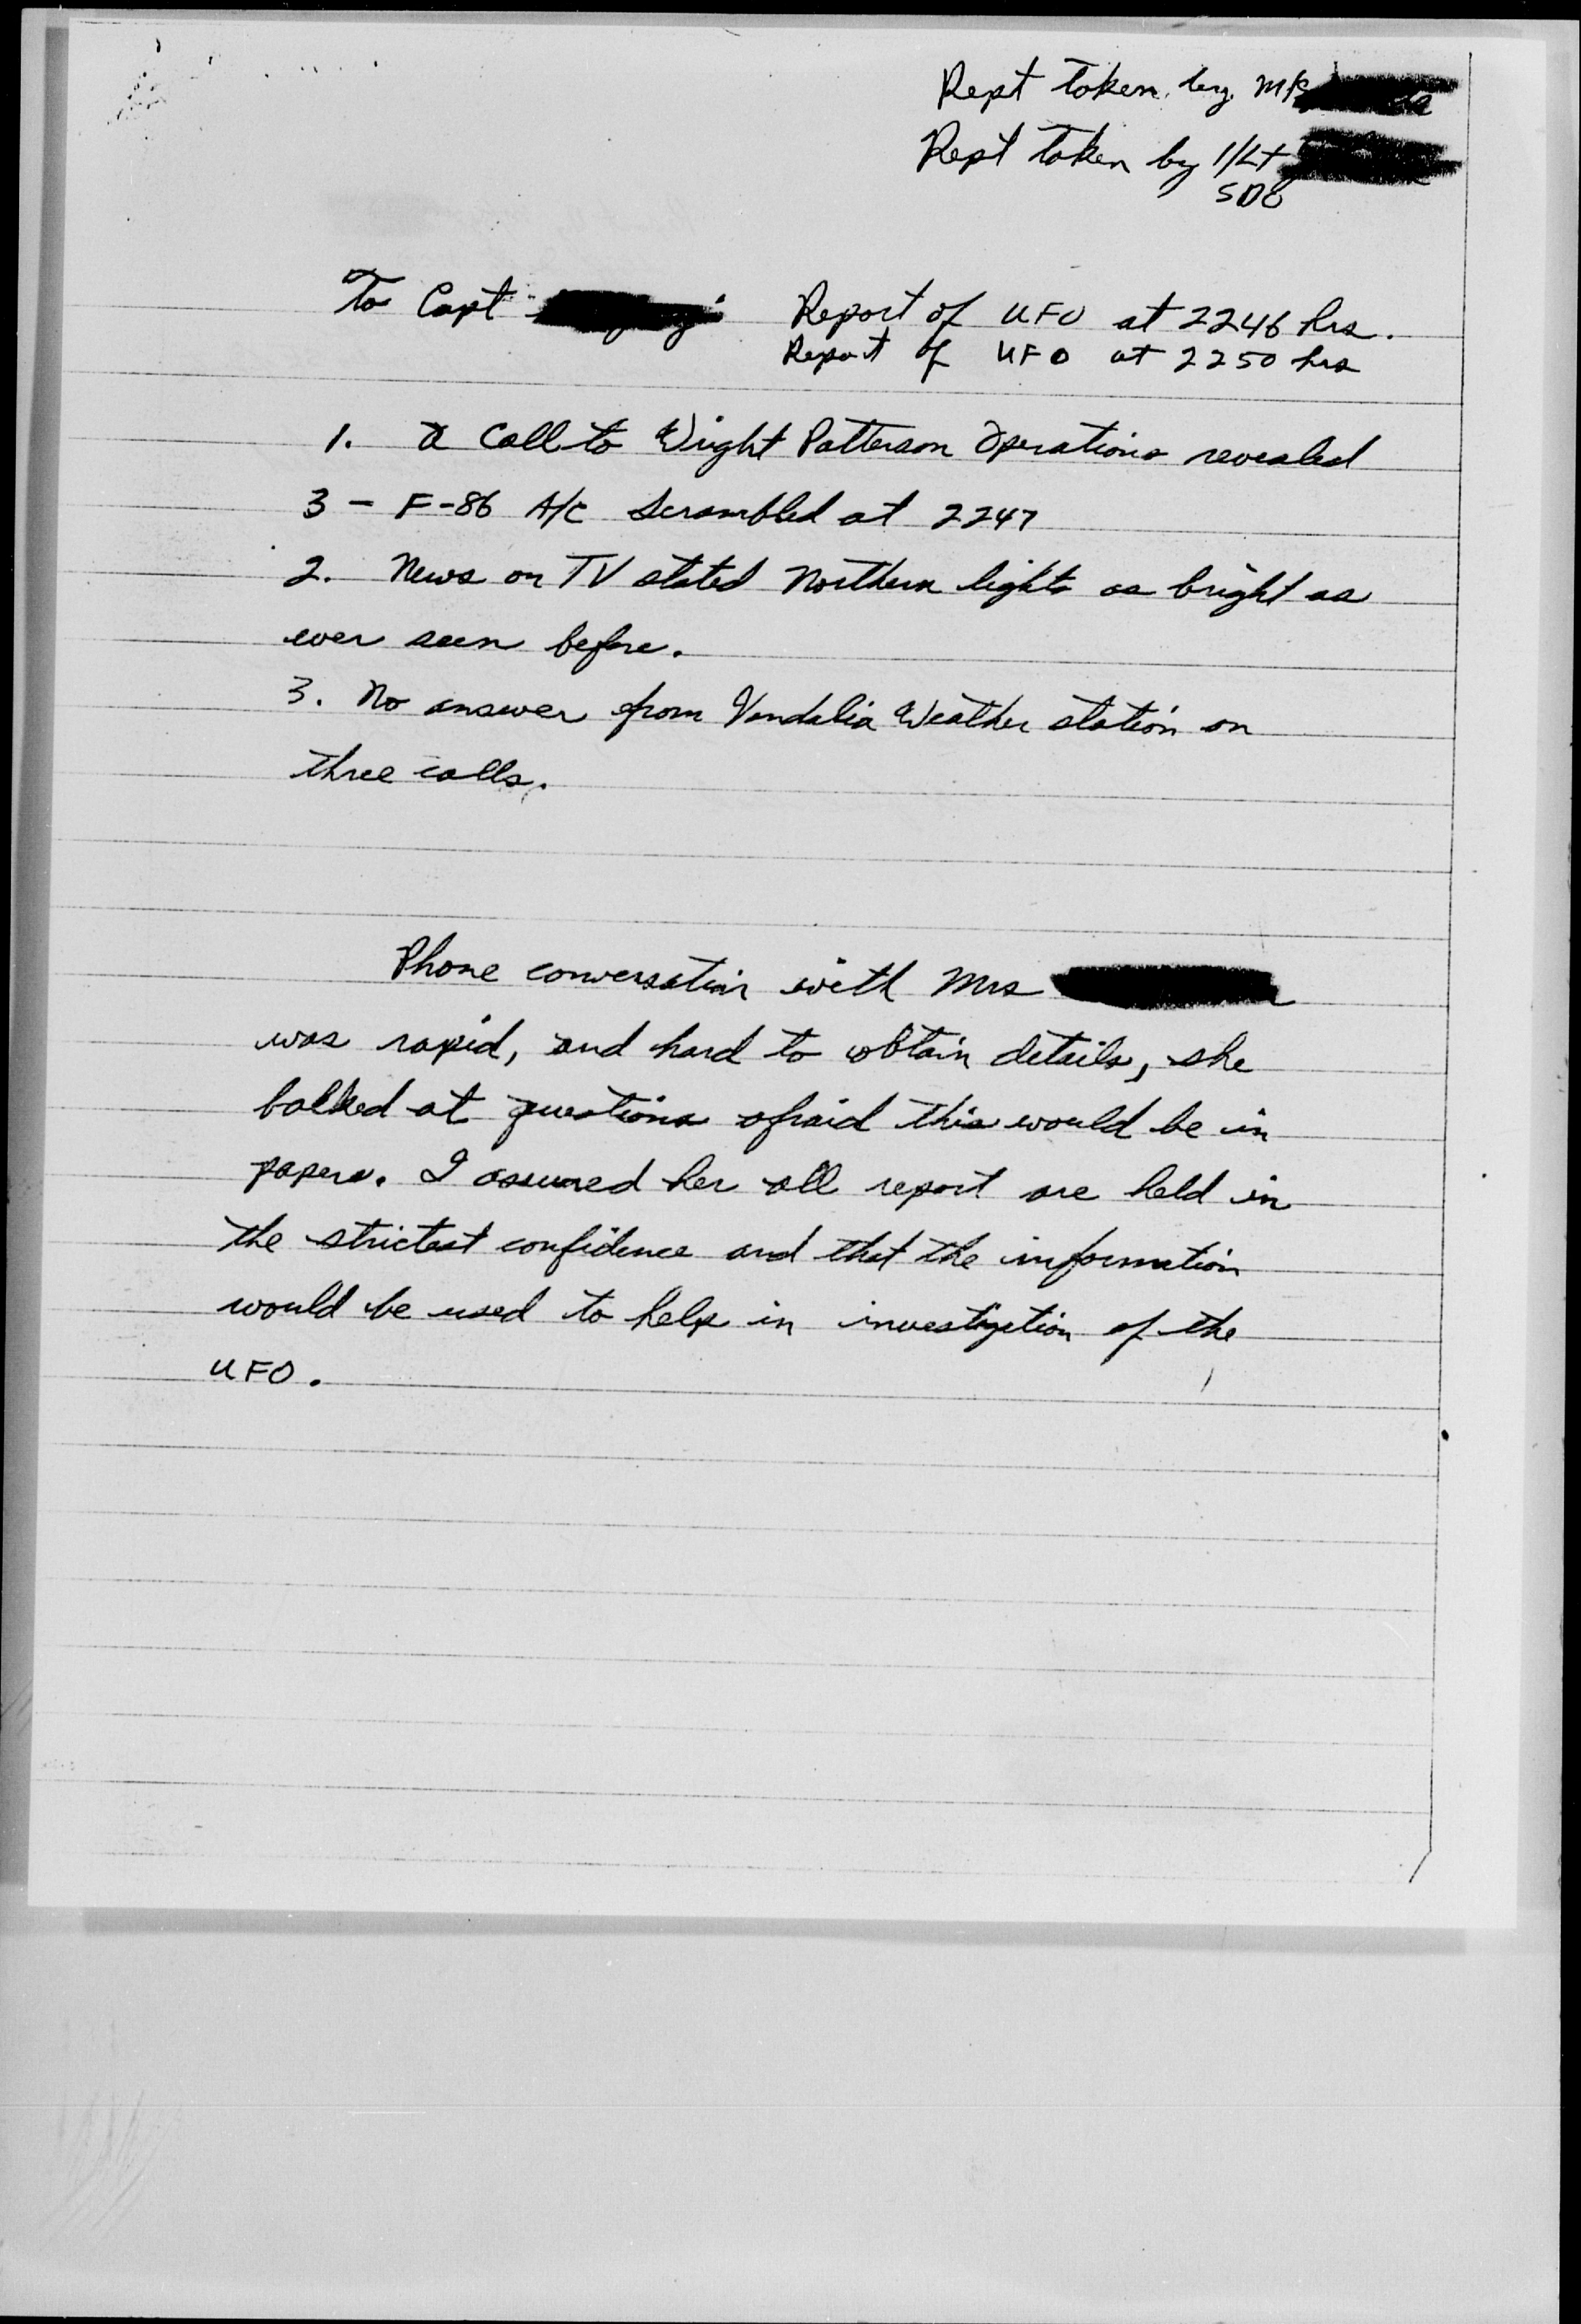 Rept taken by Mr
Rept taken by 1/Lt
SDO
To Capt Report of UFO at 2246 hrs.
Report of UFO at 2250 hrs
1. A Call to Wright Patterson Operations revealed
3 - F-86 A/C Scrambled at 2247
2. News on TV stated Northern lights as bright as
ever seen before.
3. No answer from Vandalia Weather station on
three calls.
Phone conversation with Mrs
was rapid, and hard to obtain details, she
balked at questions afraid this would be in
papers. I assured her all report are held in
the strictest confidence and that the information
would be used to help in investigation of the
UFO.